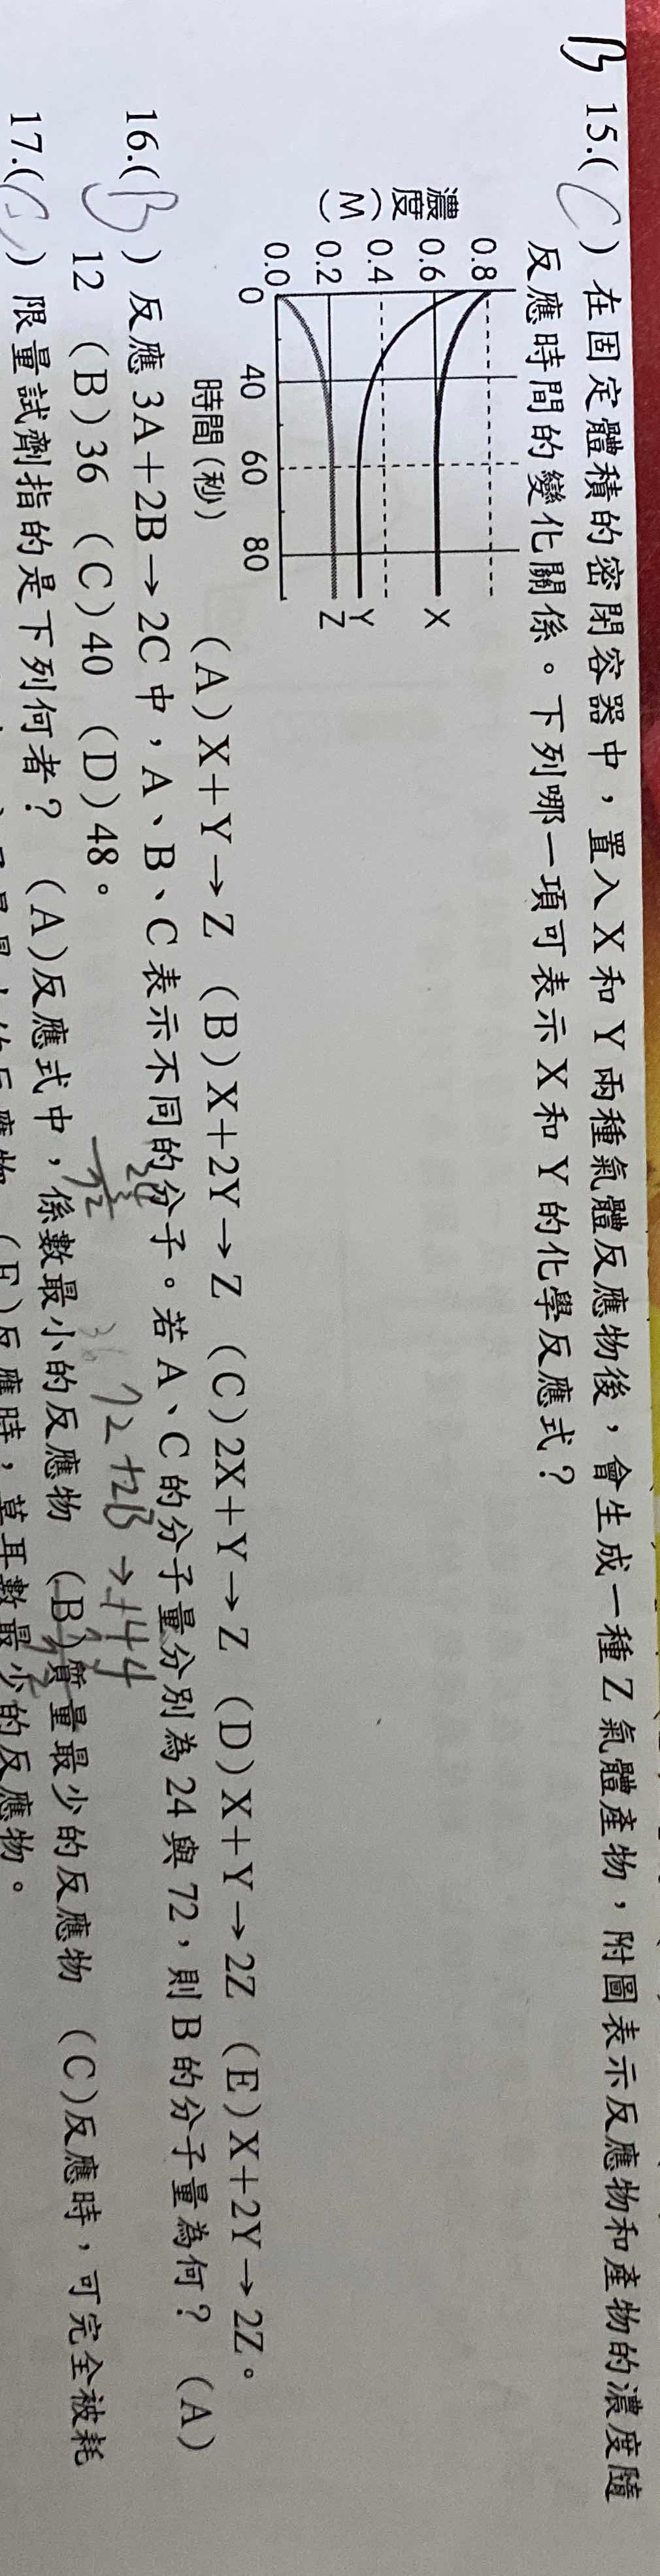 B 15.( C ) 在固定體積的密閉容器中，置入 X 和 Y 兩種氣體反應物後，會生成一種 Z 氣體產物，附圖表示反應物和產物的濃度隨
反應時間的變化關係。下列哪一項可表示 X 和 Y 的化學反應式？
濃度(M)
0.8
0.6
0.4
0.2
0.0
0 40 60 80
時間(秒)
X
Y
Z
(A) X＋Y→Z (B) X＋2Y→Z (C) 2X＋Y→Z (D) X＋Y→2Z (E) X＋2Y→2Z。
16.( B ) 反應 3A＋2B→2C 中，A、B、C 表示不同的分子。若 A、C 的分子量分別為 24 與 72，則 B 的分子量為何？ (A)
12 (B)36 (C)40 (D)48。
24
3
72
36
72+2B→144
17.( C ) 限量試劑指的是下列何者？ (A)反應式中，係數最小的反應物 (B)質量最少的反應物 (C)反應時，可完全被耗
反應時，莫耳數最少的反應物。